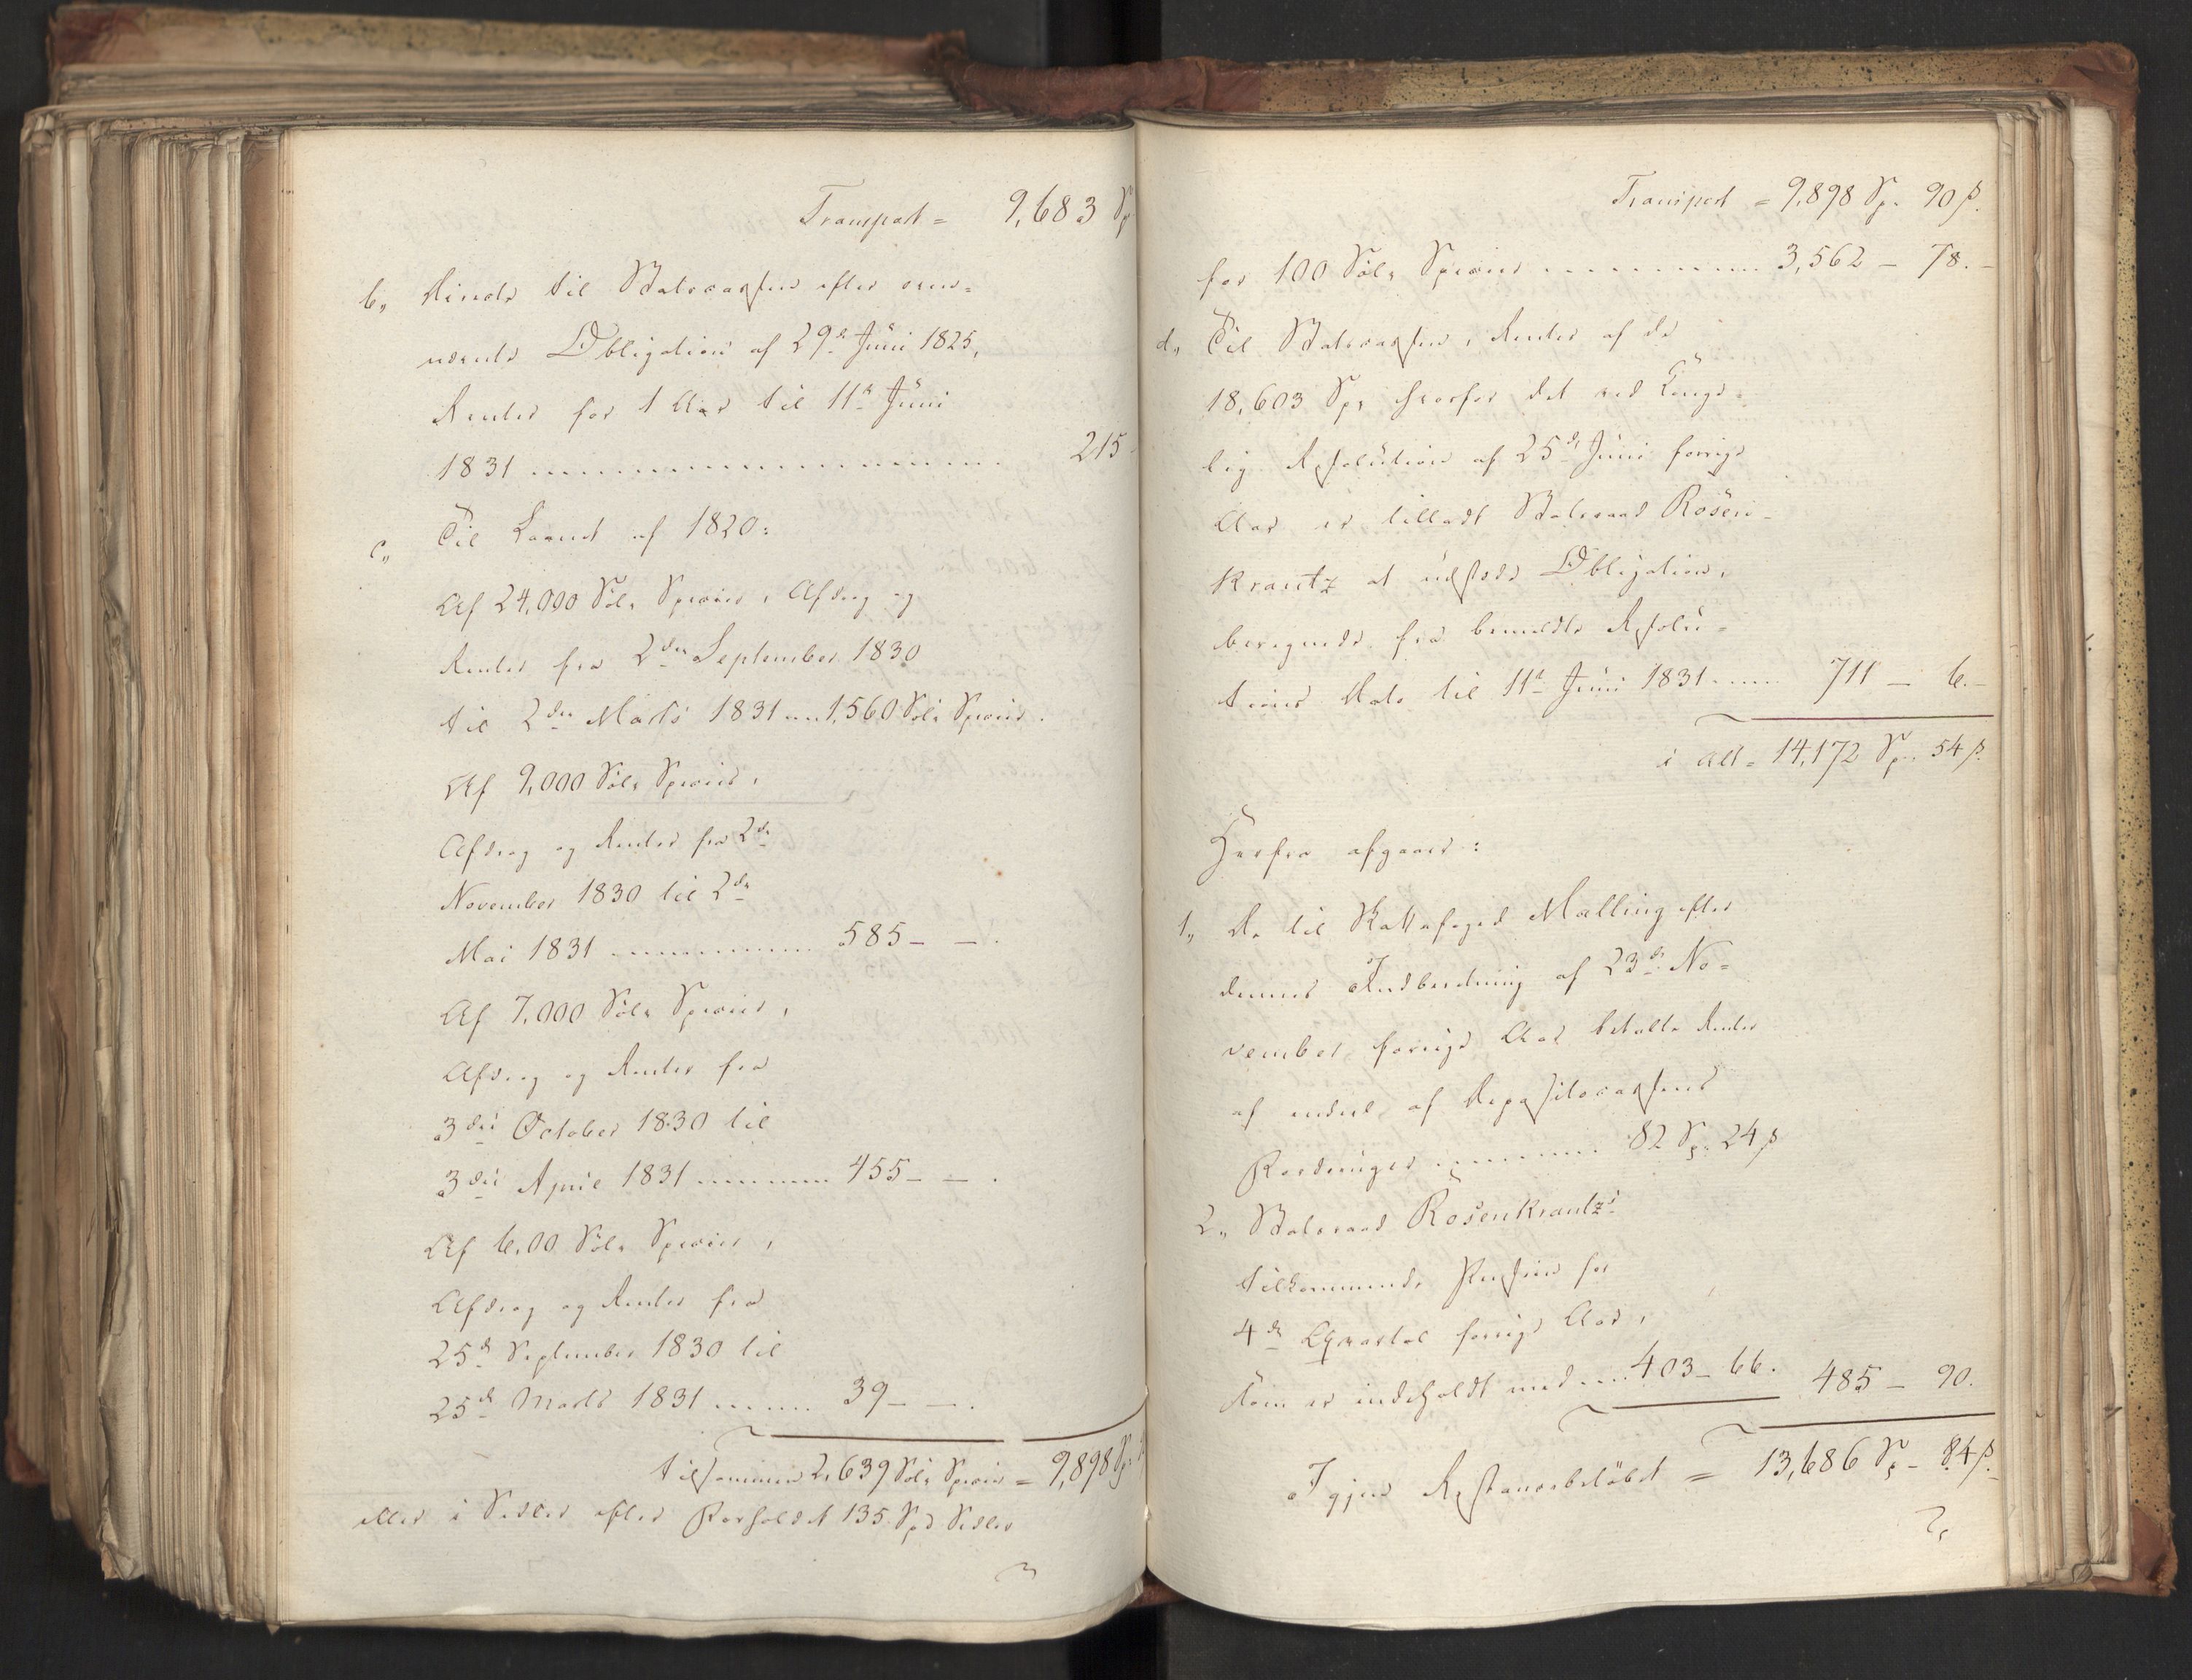 Transport = 9,683 Sp
b,, Ditto til Statscassen efter oven-
nævnte Obligation af 29de Juni 1825,
Renter for 1 Aar til 11te Juni
1831 ........ 215
c,, Til Laanet af 1820:
Af 24,000 Sølv Species, Afdrag og
Renter fra 2den September 1830
til 2den Marts 1831 ... 1,560 Sølv Species.
Af 9,000 Sølv Species,
Afdrag og Renter fra 2den
November 1830 til 2den
Mai 1831 ........ 585 - - .
Af 7,000 Sølv Species,
Afdrag og Renter fra
3die October 1830 til
3die April 1831 ........ 455 - - .
Af 6,00 Sølv Species,
Afdrag og Renter fra
25de September 1830 til
25de Marts 1831 ...... 39 - - .
tilsammen 2,639 Sølv Species = 9,898 Sp.
eller i Sedler efter Forholdet 135 Spd Sedler
Transport = 9,898 Sp. 90 ß.
for 100 Sølv Species ........ 3,562 - 78. -
d,, Til Statscassen, Renter af de
18,603 Sp, hvorfor det ved Konge-
lig Resolution af 25de Juni forrige
Aar er tilladt Statsraad Rosen-
krantz at udstæde Obligation,
beregnede fra bemeldte Resolu-
tions Dato til 11te Juni 1831 ..... 711 - 6. -
i Alt = 14,172 Sp. 54 ß.
Herfra afgaaer:
1,, De til Foged Malling efter
dennes Indberetning af 23de No-
vember forrige Aar betalte Renter
af endeel af Depositocassens
Fordringer ........ 82 Sp. 24 ß
2,, Statsraad Rosenkrantz's
tilkommende Pension for
4de Qvartal forrige Aar,
som er indeholdt med .... 403 - 66. 485 - 90.
Igjen Restancebeløbet = 13,686 Sp - 84 ß. -